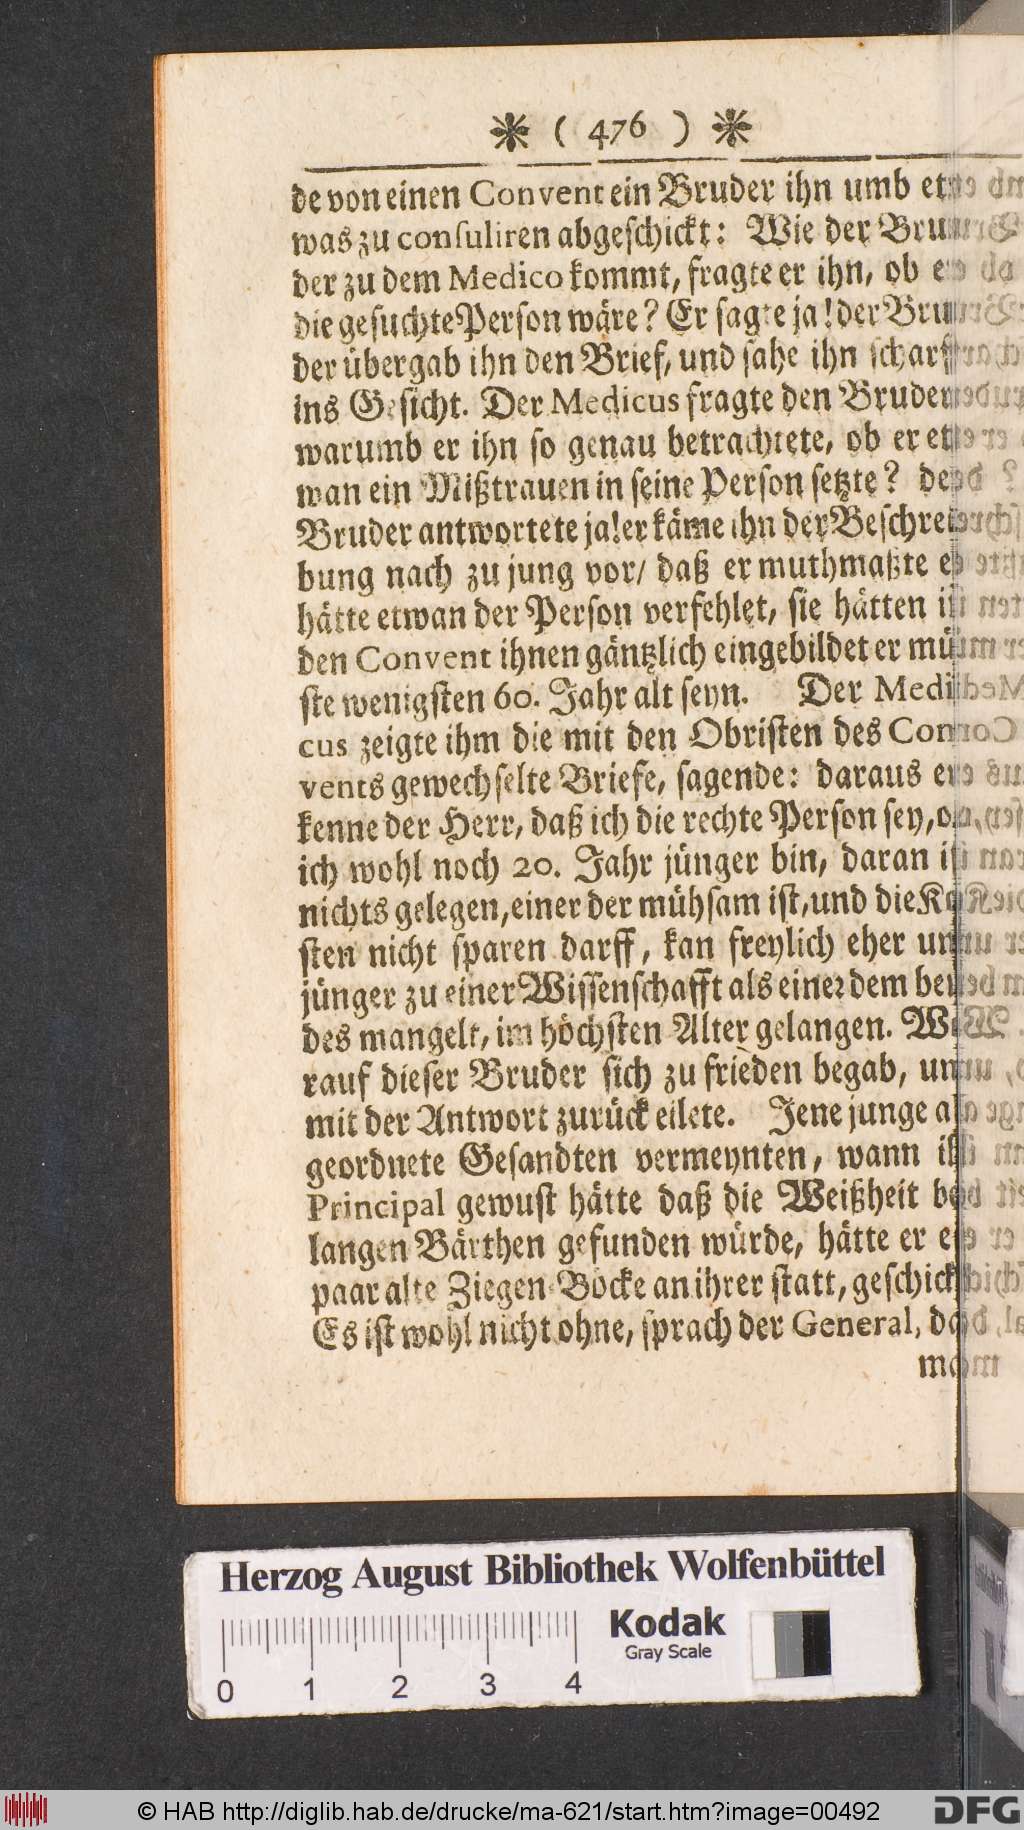 ✻ ( 476 ) ✻
de von einen Convent ein Bruder ihn umb et⸗
was zu consuliren abgeschickt: Wie der Bru⸗
der zu dem Medico kommt, fragte er ihn, ob er
die gesuchte Person wäre? Er sagte ja! der Bru⸗
der übergab ihn den Brief, und sahe ihn scharff
ins Gesicht. Der Medicus fragte den Bruder
warumb er ihn so genau betrachtete, ob er et⸗
wan ein Mißtrauen in seine Person setzte? der
Bruder antwortete ja! er käme ihn der Beschrei⸗
bung nach zu jung vor/ daß er muthmaßte er
hätte etwan der Person verfehlet, sie hätten in
den Convent ihnen gäntzlich eingebildet er mü⸗
ste wenigsten 60. Jahr alt seyn. Der Medi⸗
cus zeigte ihm die mit den Obristen des Con⸗
vents gewechselte Briefe, sagende: daraus er⸗
kenne der Herr, daß ich die rechte Person sey, ob
ich wohl noch 20. Jahr jünger bin, daran ist
nichts gelegen, einer der mühsam ist, und die Ko⸗
sten nicht sparen darff, kan freylich eher und
jünger zu einer Wissenschafft als einer dem bey⸗
des mangelt, im höchsten Alter gelangen. Wo⸗
rauf dieser Bruder sich zu frieden begab, und
mit der Antwort zurück eilete. Jene junge ab⸗
geordnete Gesandten vermeynten, wann ihr
Principal gewust hätte daß die Weißheit bey
langen Bärthen gefunden würde, hätte er ein
paar alte Ziegen⸗Böcke an ihrer statt, geschickt
Es ist wohl nicht ohne, sprach der General, daß
man
Herzog August Bibliothek Wolfenbüttel
Kodak
Gray Scale
0 1 2 3 4
© HAB http://diglib.hab.de/drucke/ma-621/start.htm?image=00492
DFG